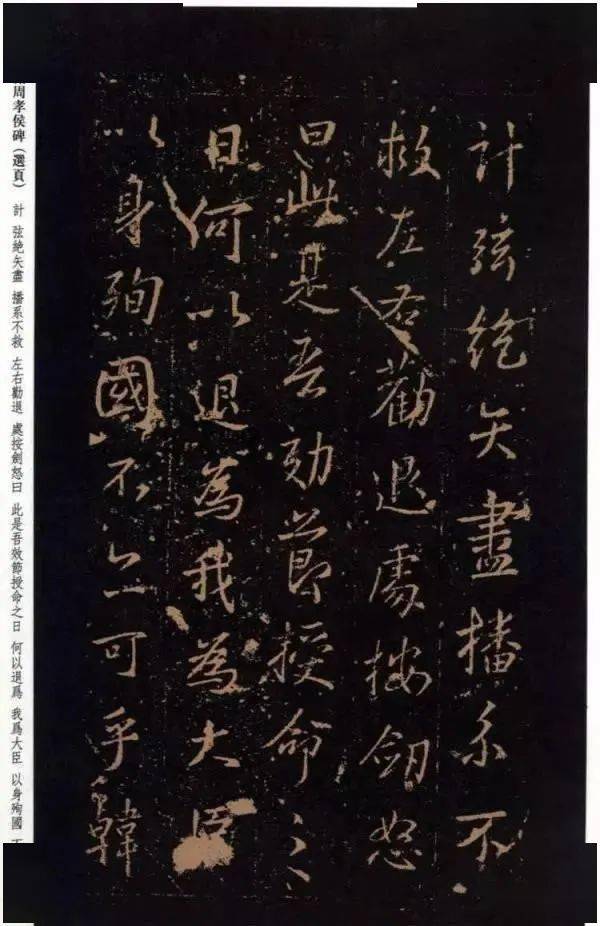 計弦絕矢盡播系不
救左右勸退處按釼怒
曰此是吾効節授命之
日何以退為我為大臣
以身殉國不亦可乎韓
周孝侯碑（選頁） 計 弦絶矢盡 播系不救 左右勸退 處按劍怒曰 此是吾效節授命之日 何以退爲 我爲大臣 以身殉國